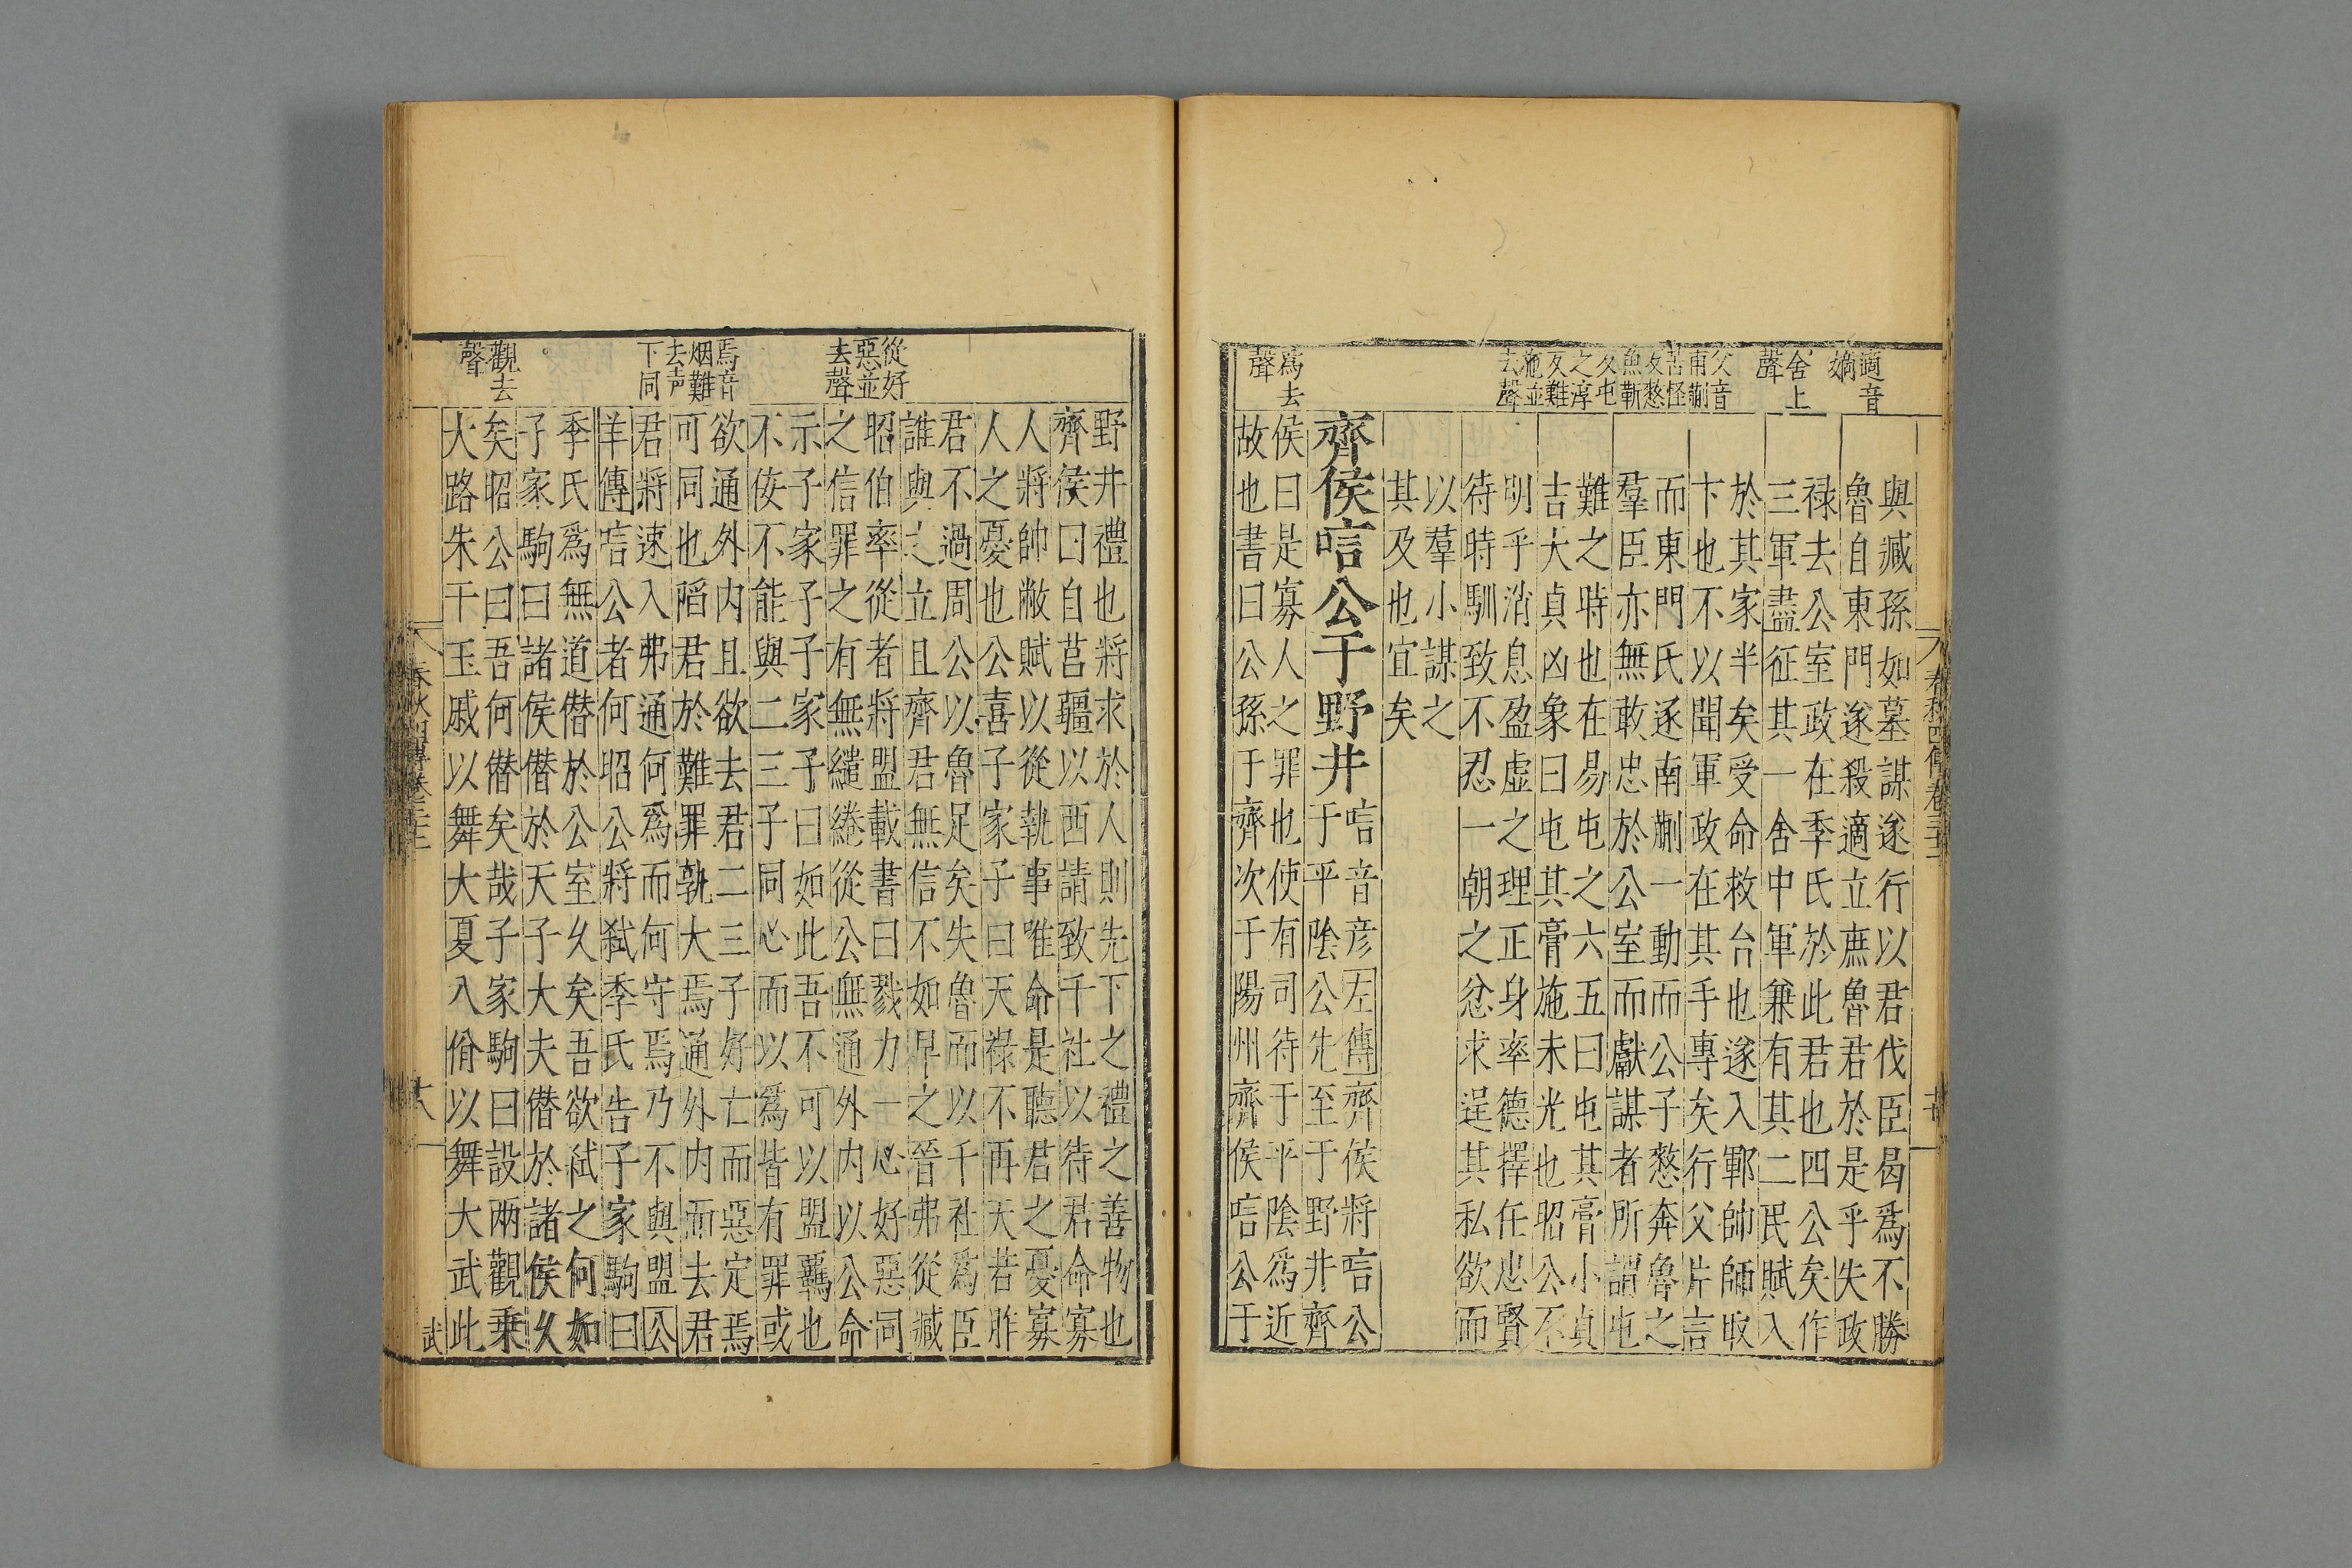 適音
嫡
舍上
聲
父音
甫蒯
苦怪
反憗
魚靳
反屯
之淳
反難
施並
去聲
爲去
聲
與臧孫如墓謀遂行以君伐臣曷爲不勝
魯自東門遂殺適立庶魯君於是乎失政
祿去公室政在季氏於此君也四公矣作
三軍盡征其一舍中軍兼有其二民賦入
於其家半矣受命救台也遂入鄆帥師取
卞也不以聞軍政在其手專矣行父片言
而東門氏逐南蒯一動而公子憗奔魯之
羣臣亦無敢忠於公室而獻謀者所謂屯
難之時也在易屯之六五曰屯其膏小貞
吉大貞凶象曰屯其膏施未光也昭公不
明乎消息盈虛之理正身率德擇任忠賢
待時馴致不忍一朝之忿求逞其私欲而
以羣小謀之
其及也宜矣
齊侯唁公于野井
唁音彥左傳齊侯將唁公
于平陰公先至于野井齊
侯曰是寡人之罪也使有司待于平陰爲近
故也書曰公孫于齊次于陽州齊侯唁公于
從好
惡並
去聲
焉音
烟難
去声
下同
觀去
聲
野井禮也將求於人則先下之禮之善物也
齊侯曰自莒疆以西請致千社以待君命寡
人將帥敝賦以從執事唯命是聽君之憂寡
人之憂也公喜子家子曰天祿不再天若胙
君不過周公以魯足矣失魯而以千社爲臣
誰與之立且齊君無信不如早之晉弗從臧
昭伯率從者將盟載書曰戮力一心好惡同
之信罪之有無繾綣從公無通外内以公命
示子家子子家子曰如此吾不可以盟羈也
不佞不能與二三子同心而以爲皆有罪或
欲通外内且欲去君二三子好亡而惡定焉
可同也陷君於難罪孰大焉通外内而去君
君將速入弗通何爲而何守焉乃不與盟公
羊傳唁公者何昭公將弑季氏告子家駒曰
季氏爲無道僭於公室久矣吾欲弑之何如
子家駒曰諸侯僭於天子大夫僭於諸侯久
矣昭公曰吾何僭矣哉子家駒曰設兩觀乘
大路朱干玉戚以舞大夏八佾以舞大武此
武